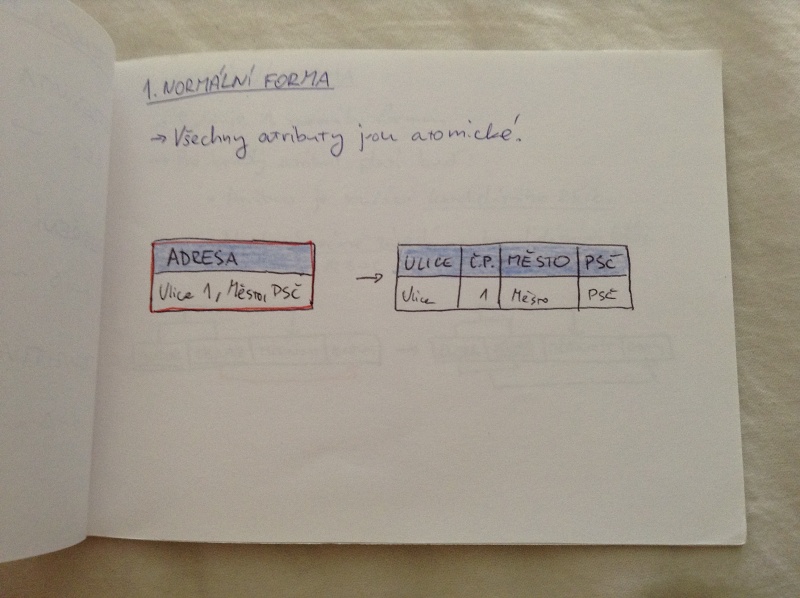 1. NORMÁLNÍ FORMA
→ Všechny atributy jsou atomické.
ADRESA
Ulice 1, Město, PSČ
→
ULICE Č.P. MĚSTO PSČ
Ulice 1 Město PSČ